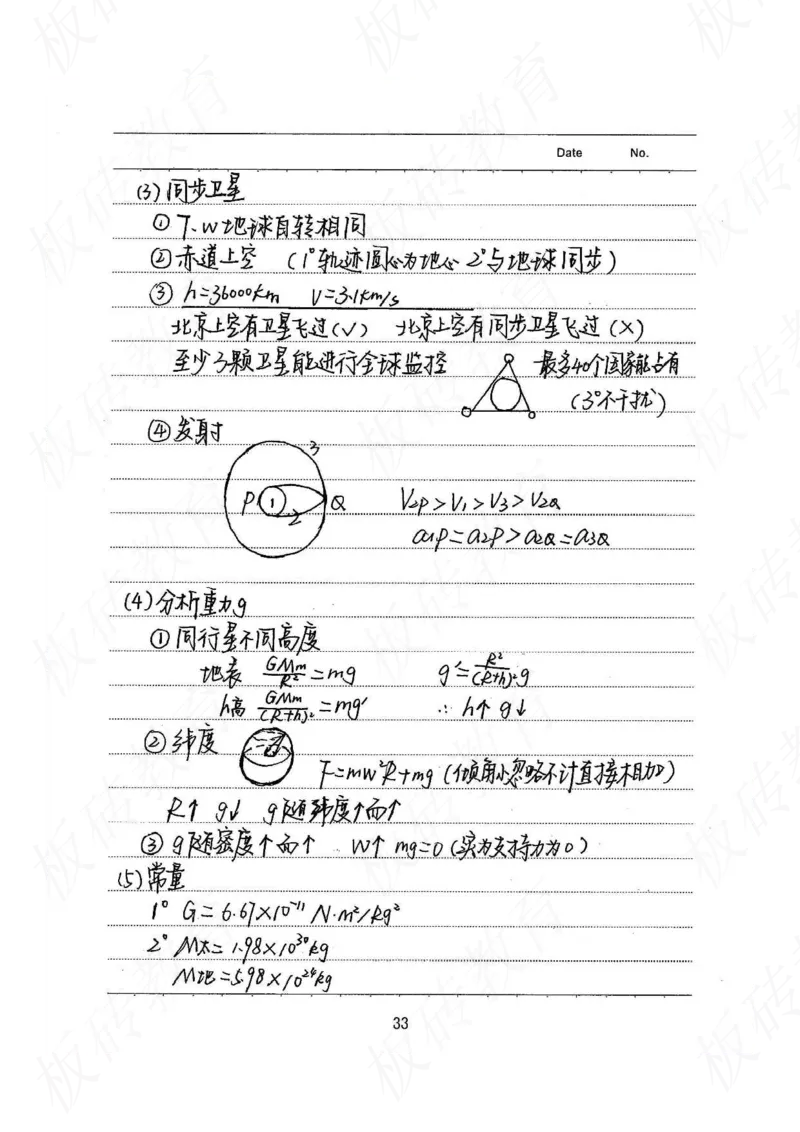 Date No.
(3) 同步卫星
① T、ω地球自转相同
② 赤道上空 (1°轨迹圆心为地心 2°与地球同步)
③ h=36000km V=3.1km/s
北京上空有卫星飞过(√) 北京上空有同步卫星飞过(×)
至少3颗卫星能进行全球监控 最多40个国家能占有
(3°不干扰)
④ 发射
3
P 1 2 Q V2P>V1>V3>V2Q
a1P=a2P>a2Q=a3Q
(4) 分析重力g
① 同行星不同高度
地表 GMm/R²=mg g'=R²/(R+h)²·g
h高 GMm/(R+h)²=mg' ∴ h↑ g↓
② 纬度
F=mω²R+mg (倾角小忽略不计直接相加)
R↑ g↓ g随纬度↑而↑
③ g随密度↑而↑ W↑ mg=0 (实为支持力为0)
(5) 常量
1° G=6.67×10⁻¹¹ N·m²/kg²
2° M太=1.98×10³⁰kg
M地=5.98×10²⁴kg
33
板砖教育